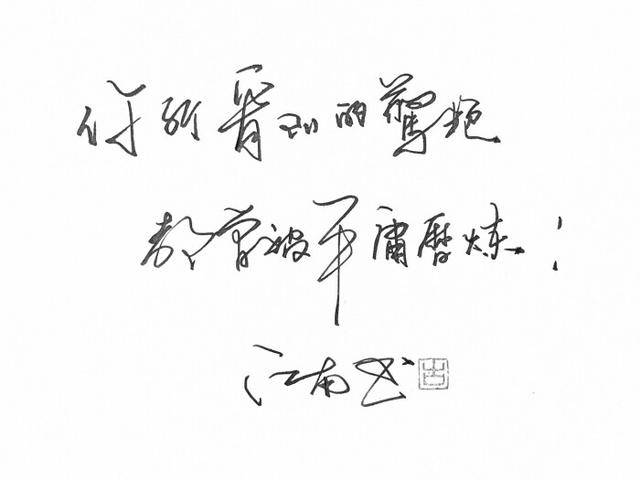 你所看到的惊艳
都曾被平庸磨炼!
江南书